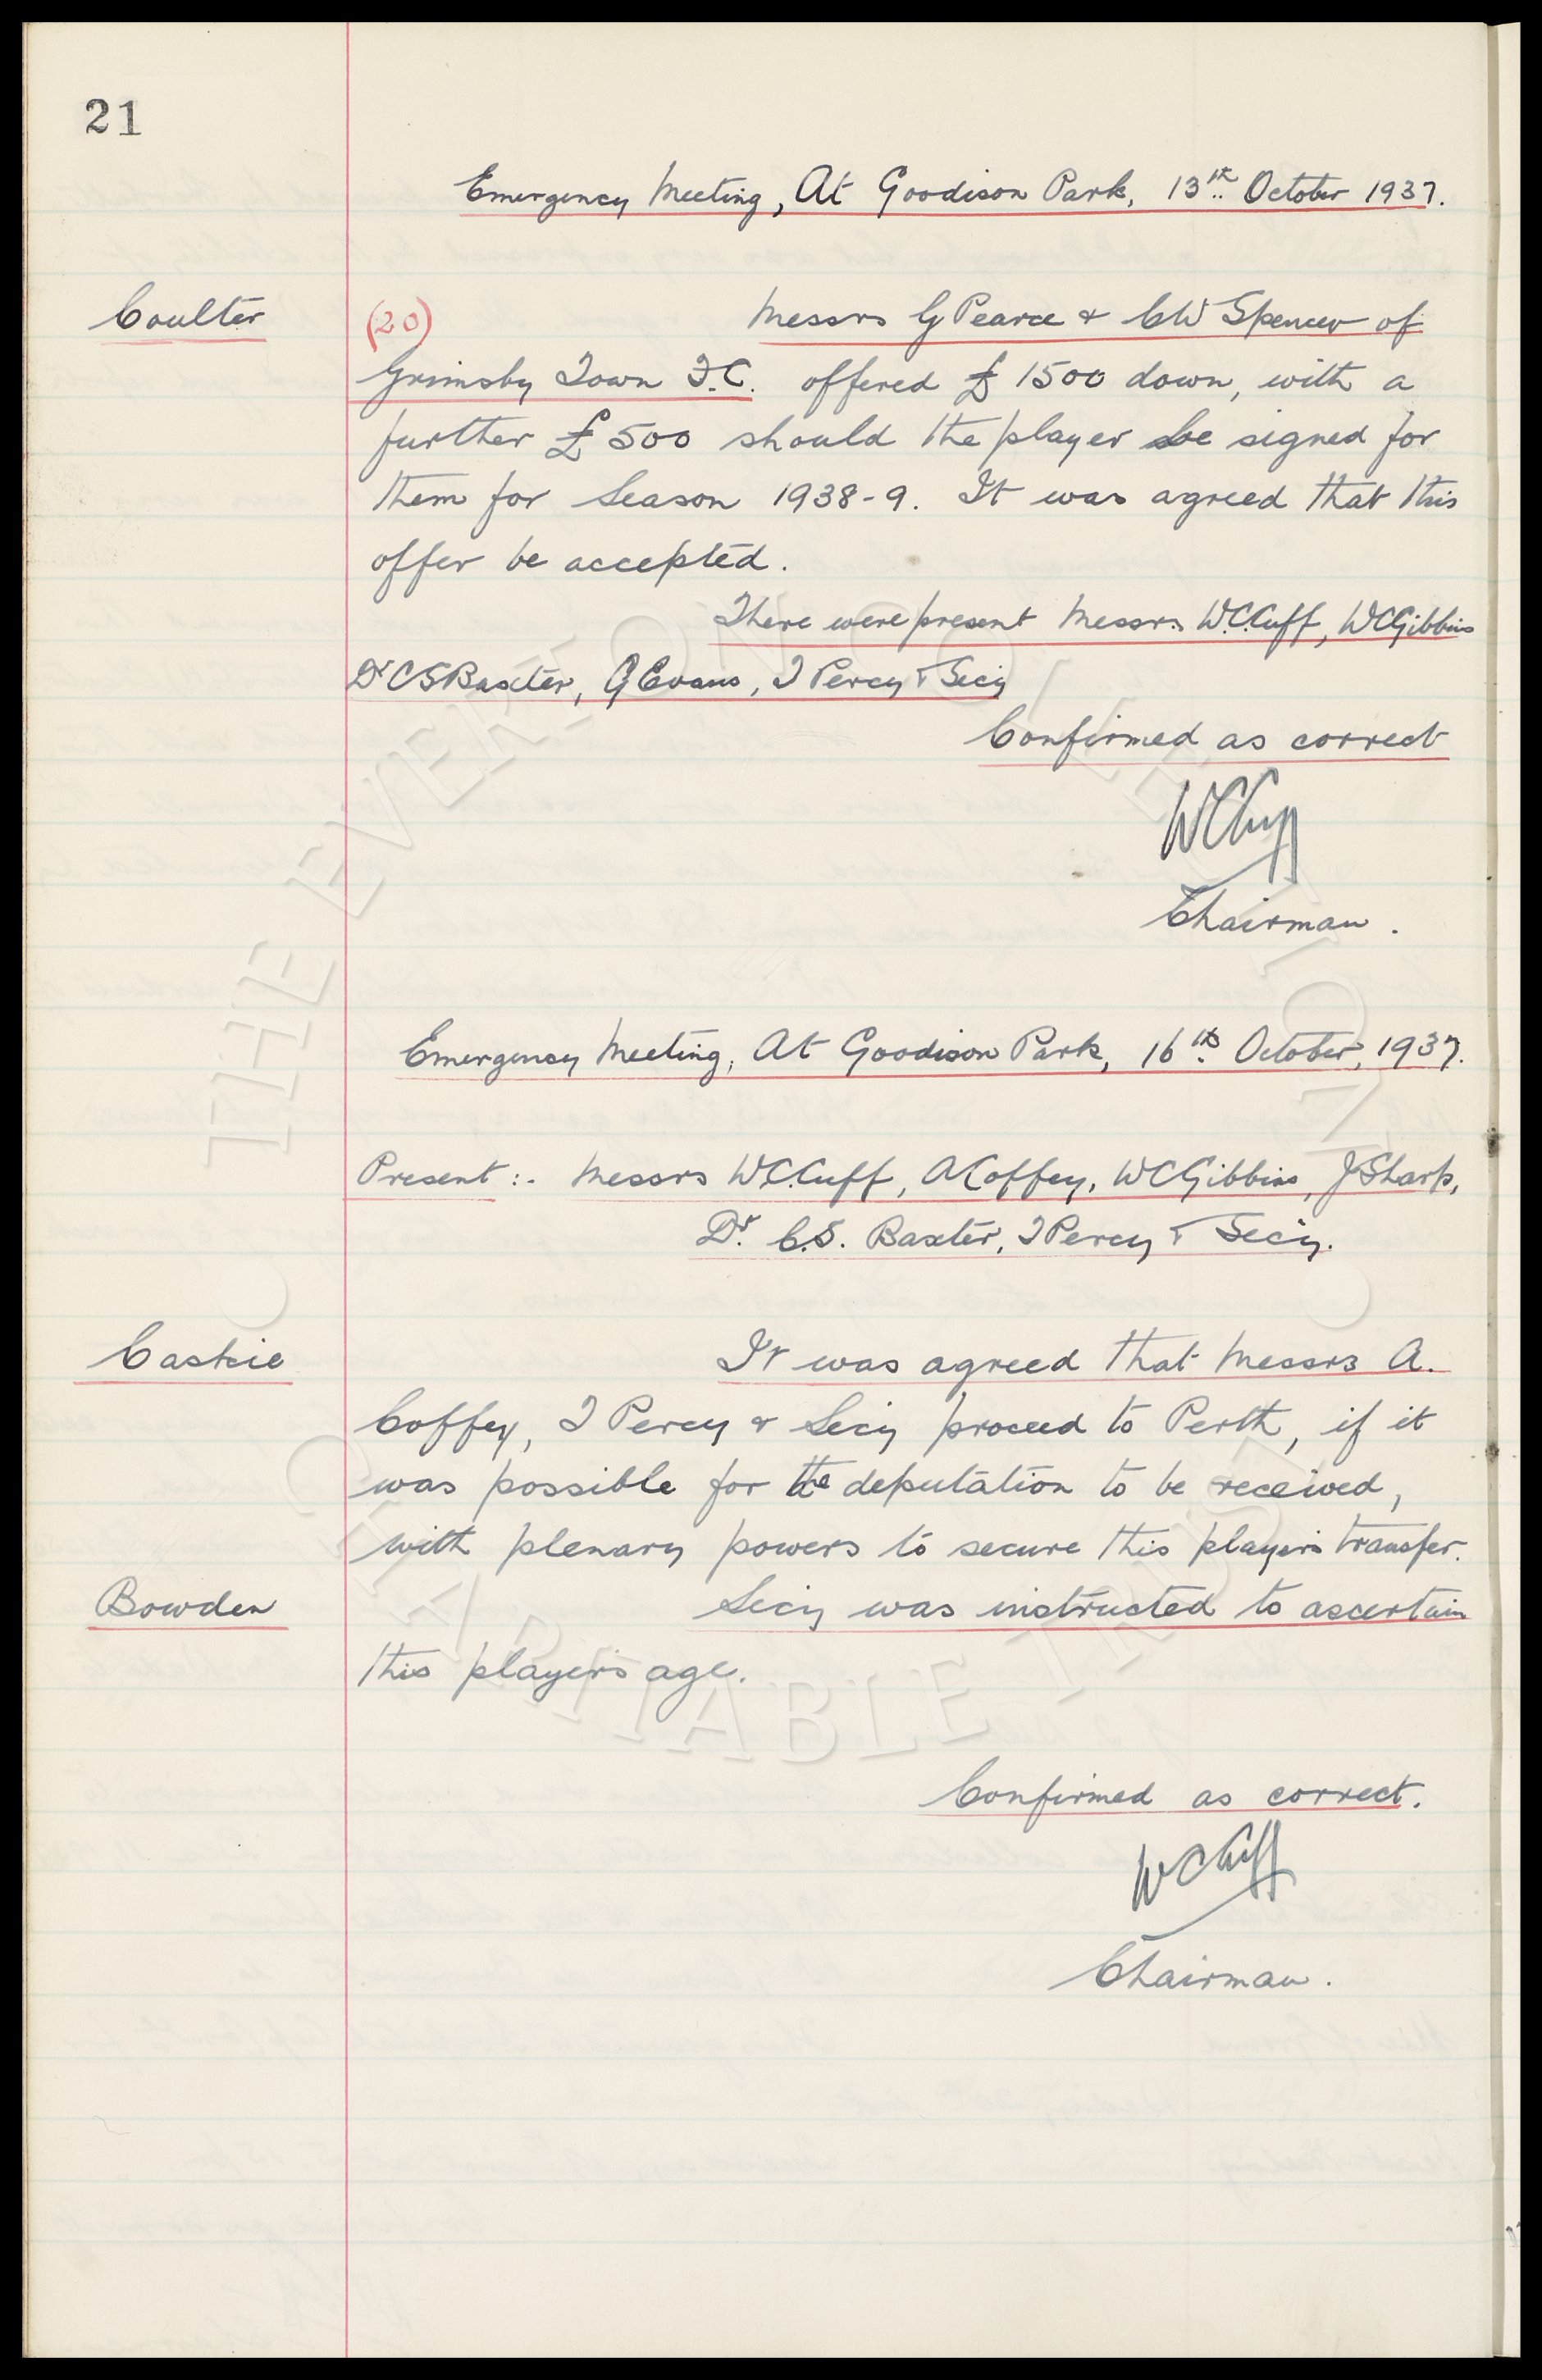 21
Emergency Meeting, At Goodison Park, 13th October 1937.
Coulter
(20)
Messrs G Pearce & CW Spencer of
Grimsby Town F.C. offered £1500 down, with a
further £500 should the player be signed for
them for Season 1938-9. It was agreed that this
offer be accepted.
There were present Messrs W.C.Cuff, WCGibbins
Dr CSBaxter, GEvans, T Percy & Secy
Confirmed as correct
WCCuff
Chairman.
Emergency Meeting, At Goodison Park, 16th October, 1937.
Present:- Messrs W.C.Cuff, ACoffey, WCGibbins, JSharp,
Dr. C.S. Baxter, TPercy & Secy.
Caskie
It was agreed that Messrs A.
Coffey, T Percy & Secy proceed to Perth, if it
was possible for the deputation to be received,
with plenary powers to secure this player's transfer.
Bowden
Secy was instructed to ascertain
this player's age.
Confirmed as correct.
WCCuff
Chairman.
THE EVERTON COLLECTION
CHARITABLE TRUST